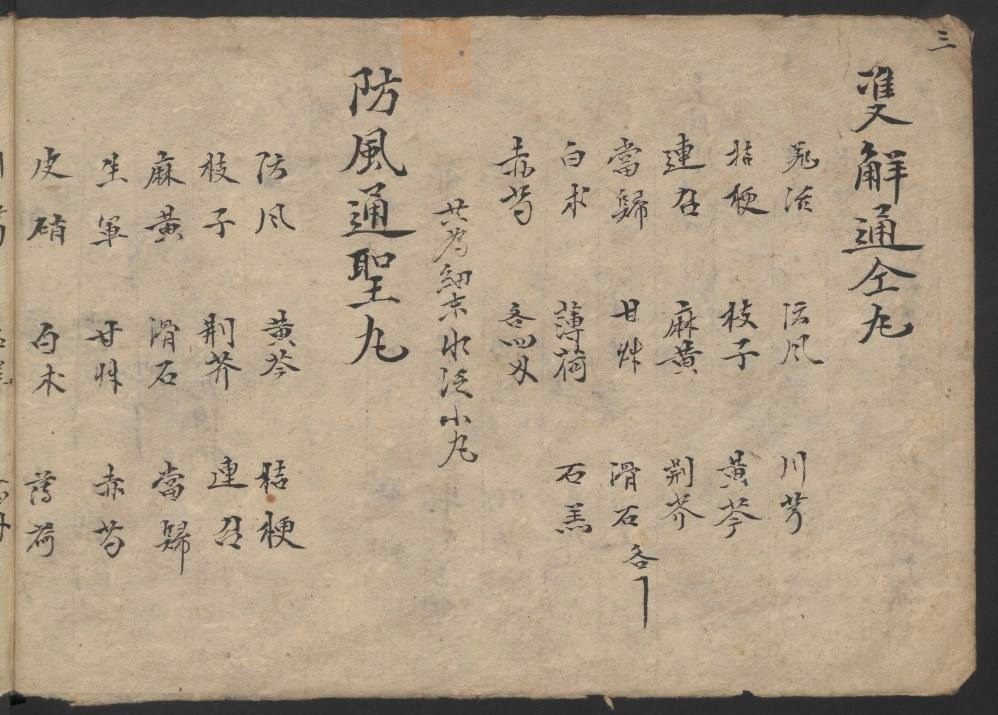 三
雙解通仝丸
羌活 防風 川芎
桔梗 枝子 黄芩
連召 麻黄 荆芥
當歸 甘草 滑石 各
白术 薄荷 石羔
赤芍 各四
共為細末水泛小丸
防風通聖丸
防风 黄芩 桔梗
枝子 荆芥 連召
麻黄 滑石 當歸
生軍 甘草 赤芍
皮硝 白术 薄荷